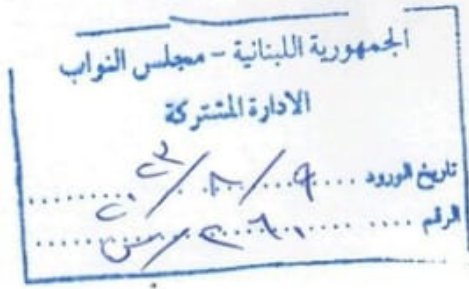 الجمهورية اللبنانية - مجلس النواب
الادارة المشتركة
تاريخ الورود ٩/٨/٢٣
الرقم